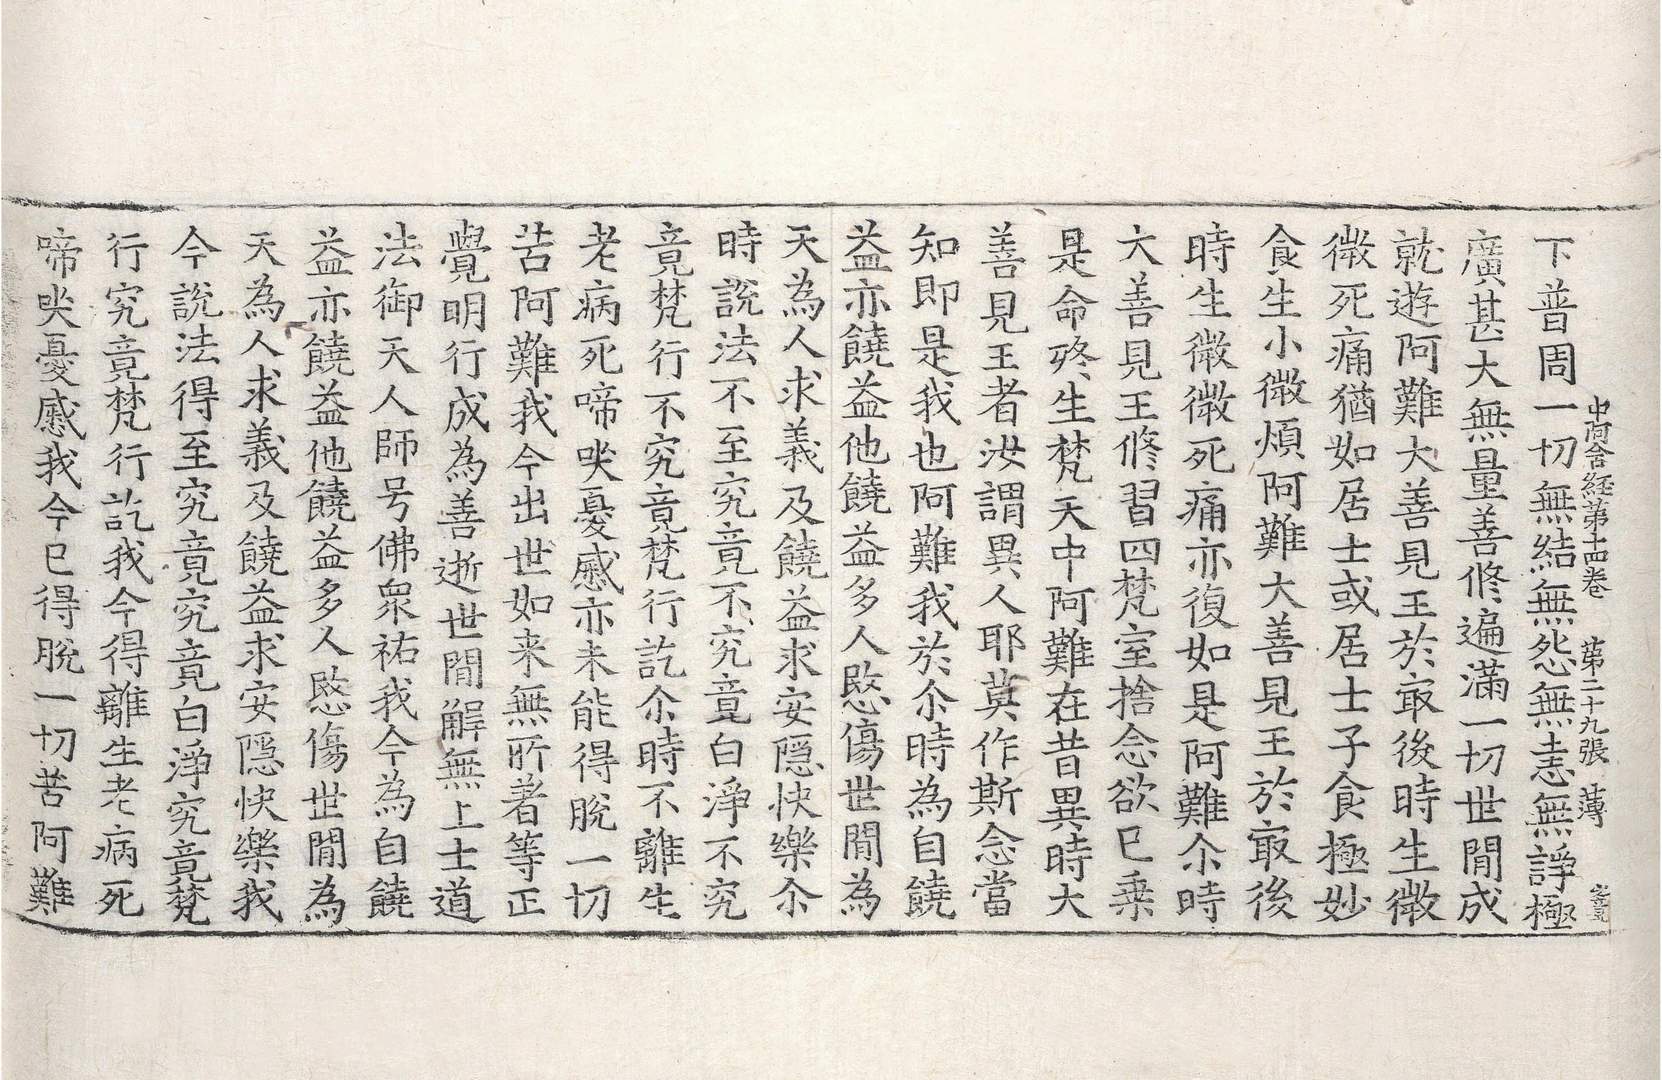 中阿含経第十四卷 第二十九張 薄
下普周一切無結無怨無恚無諍極
廣甚大無量善修遍滿一切世間成
就遊阿難大善見王於㝡後時生微
微死痛猶如居士或居士子食極妙
食生小微煩阿難大善見王於㝡後
時生微微死痛亦復如是阿難尒時
大善見王修習四梵室捨念欲已乗
是命終生梵天中阿難在昔異時大
善見王者汝謂異人耶莫作斯念當
知即是我也阿難我於尒時為自饒
益亦饒益他饒益多人愍傷世間為
天為人求義及饒益求安隱快樂尒
時說法不至究竟不究竟白淨不究
竟梵行不究竟梵行訖尒時不離生
老病死啼哭憂慼亦未能得脫一切
苦阿難我今出世如来無所著等正
覺明行成為善逝世間解無上士道
法御天人師号佛衆祐我今為自饒
益亦饒益他饒益多人愍傷世間為
天為人求義及饒益求安隱快樂我
今說法得至究竟究竟白淨究竟梵
行究竟梵行訖我今得離生老病死
啼哭憂慼我今已得脫一切苦阿難